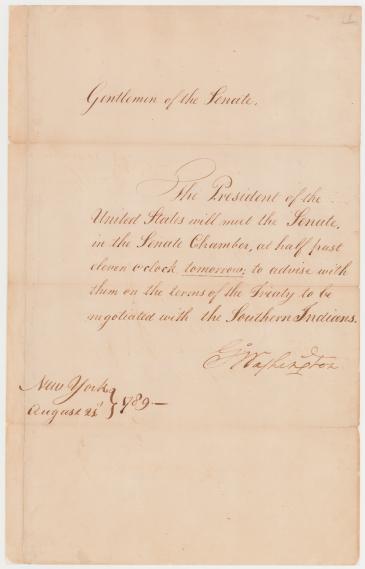 Gentlemen of the Senate.
The President of the
United States will meet the Senate,
in the Senate Chamber, at half past
eleven o'clock, tomorrow; to advise with
them on the terms of the Treaty to be
negotiated with the Southern Indians.
Go Washington
New York
August 21st } 1789 —